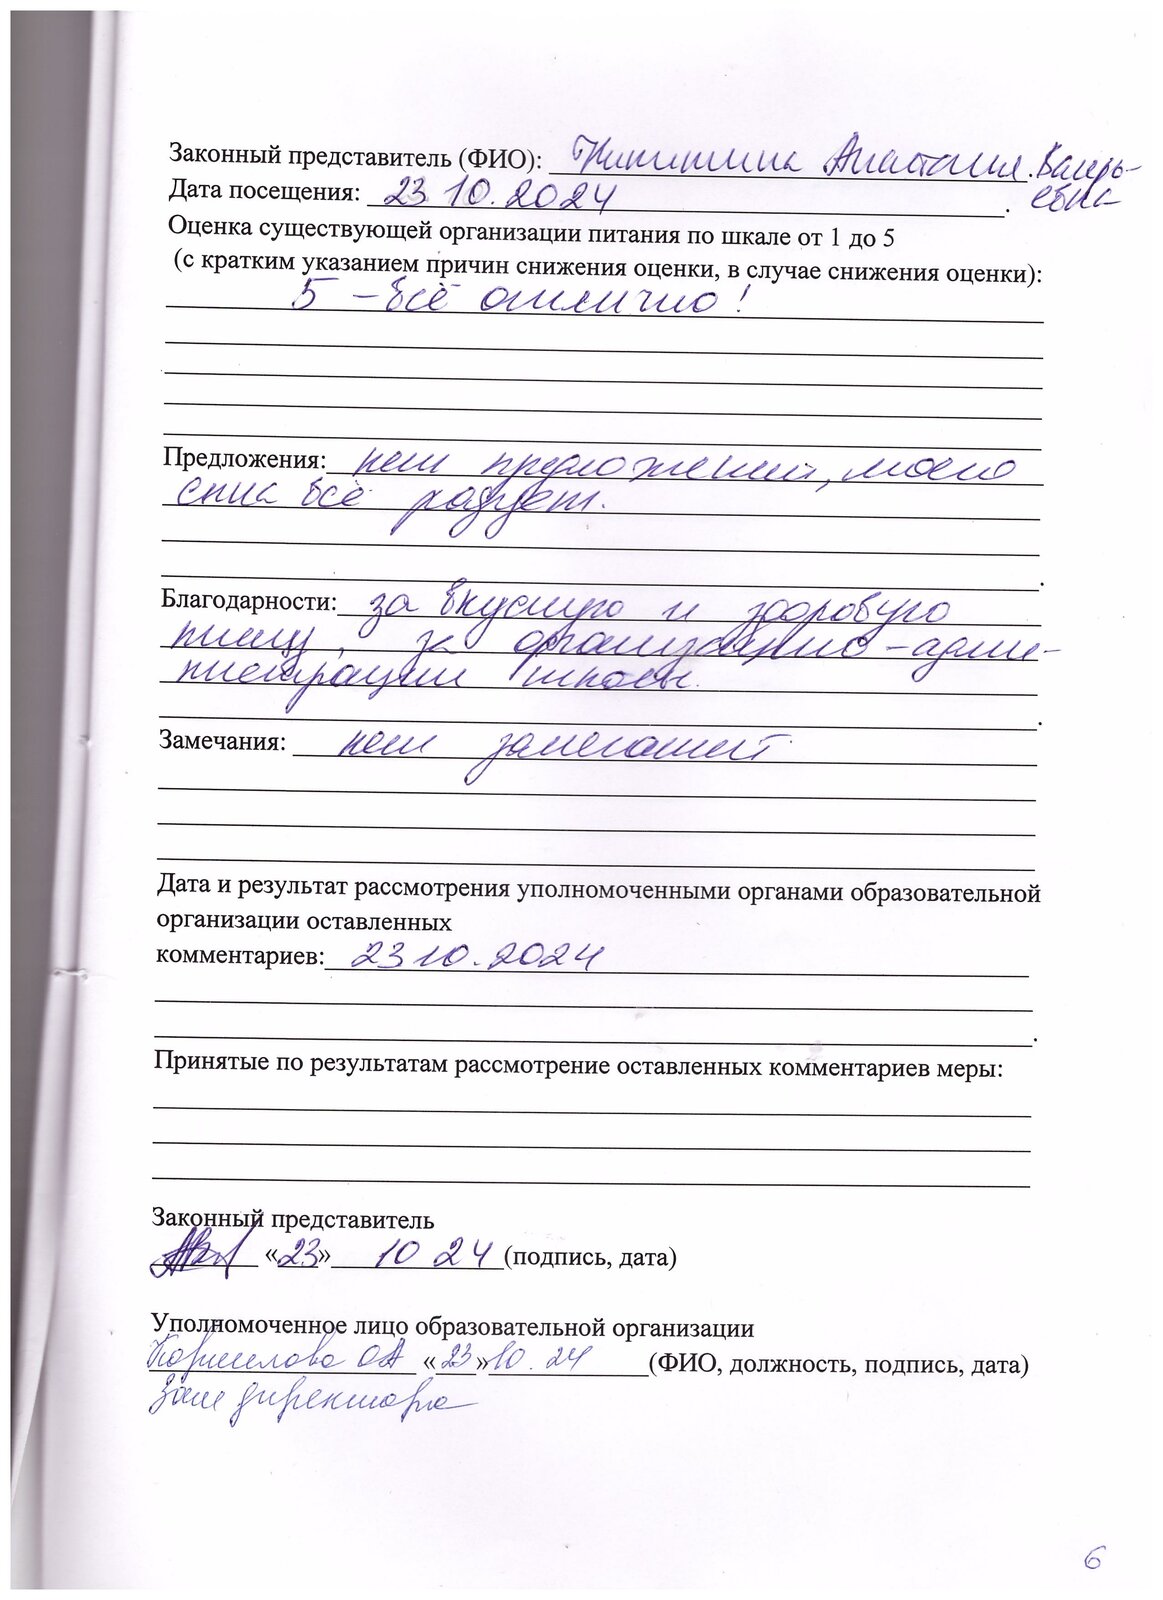 Законный представитель (ФИО): Никитина Анастасия Валерь-
Дата посещения: 23 10.2024. евна
Оценка существующей организации питания по шкале от 1 до 5
(с кратким указанием причин снижения оценки, в случае снижения оценки):
5 – всё отлично!
Предложения: нет предложений, моего
сына всё радует.
Благодарности: за вкусную и здоровую
пищу, за организацию - адми-
нистрации школы.
Замечания: нет замечаний
Дата и результат рассмотрения уполномоченными органами образовательной
организации оставленных
комментариев: 23 10.2024
Принятые по результатам рассмотрение оставленных комментариев меры:
Законный представитель
«23» 10 24 (подпись, дата)
Уполномоченное лицо образовательной организации
ОА «23» 10. 24 (ФИО, должность, подпись, дата)
Зам директора
6